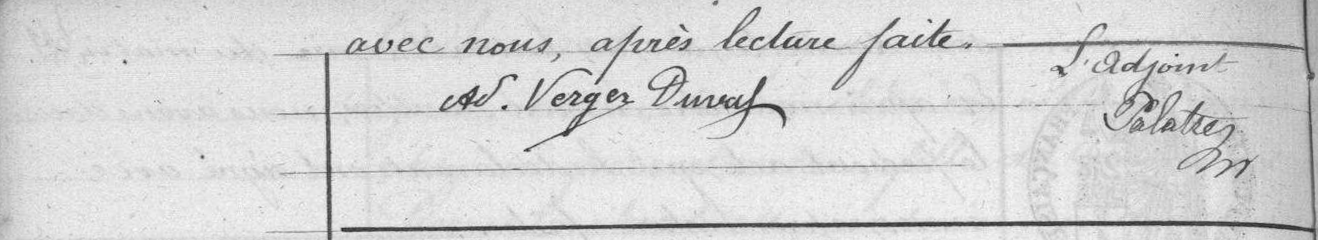 avec nous, après lecture faite.
L'adjoint
Ad. Verger Duval
Palatre